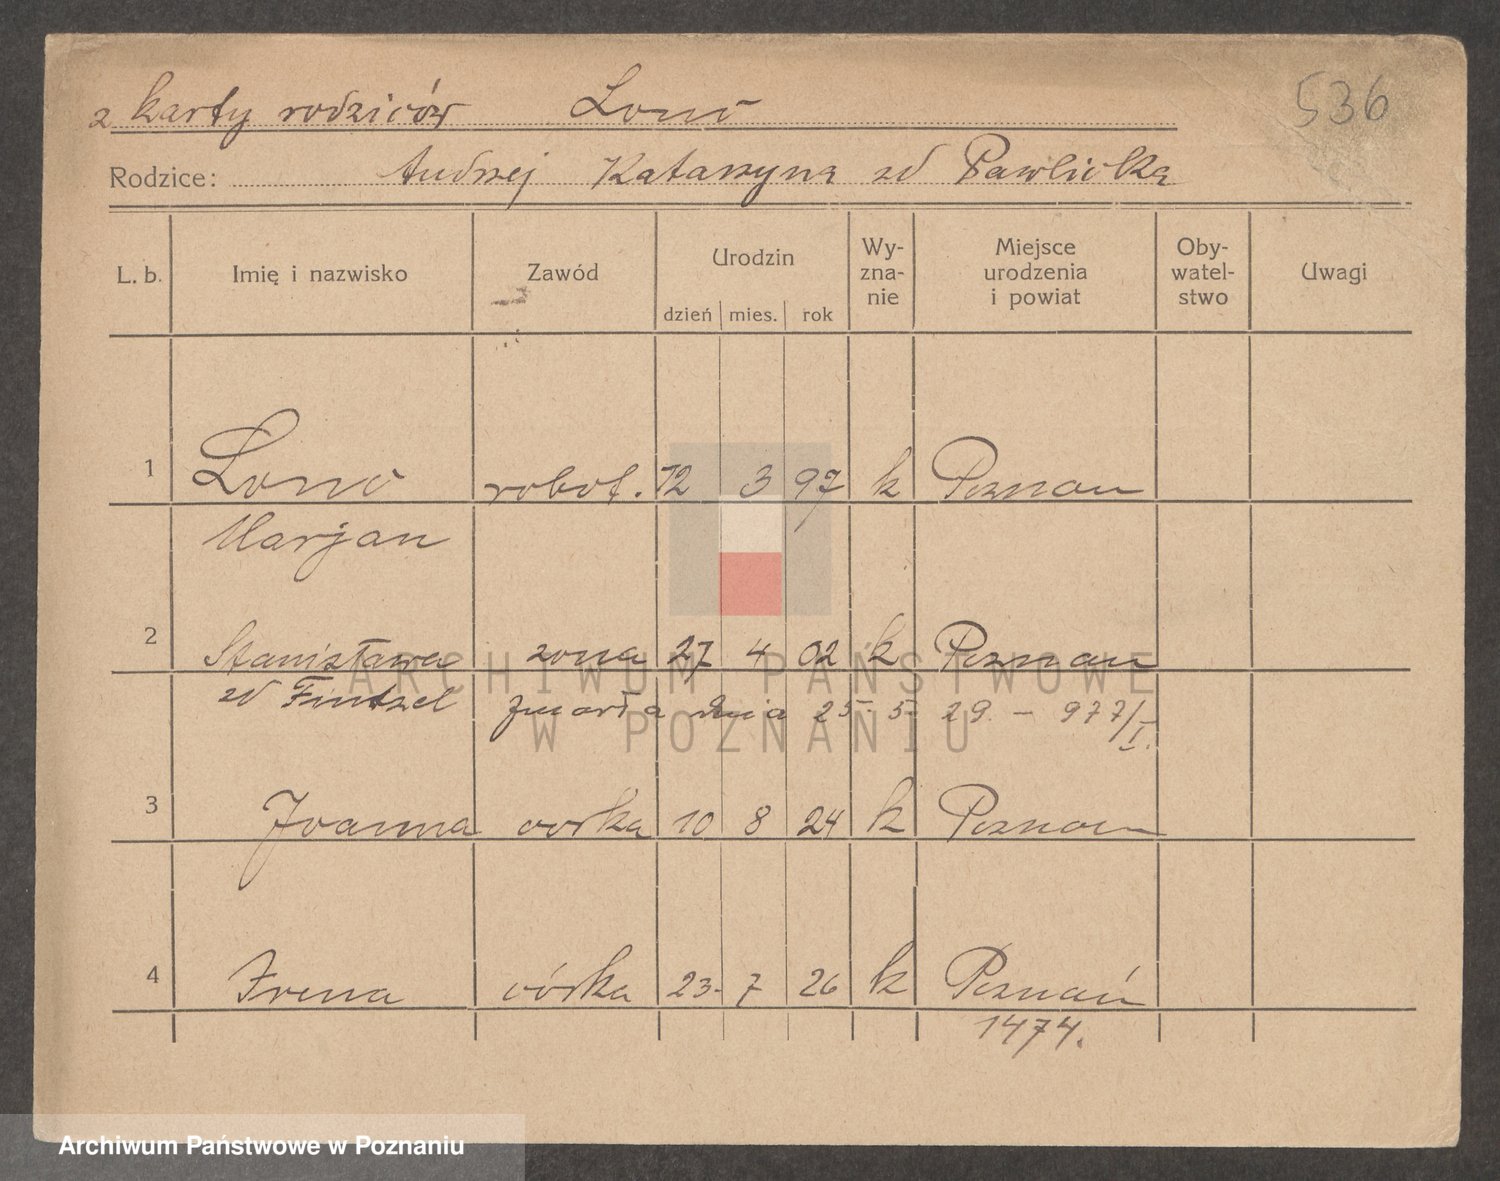 z karty rodziców Lonc 536
Rodzice: Andrzej Katarzyna zd Pawlicka
L. b. Imię i nazwisko Zawód Urodzin Wy- zna- nie Miejsce urodzenia i powiat Oby- watel- stwo Uwagi
dzień mies. rok
1 Lonc robot. 12 3 97 k Poznan
Marjan
2 Stanisława zona 27 4 02 k Poznan
zd Fintzel zmarła dnia 25. 5. 29. – 977/I.
3 Joanna corka 10 8 24 k Poznan
4 Irena córka 23. 7 26 k Poznań
1474.
ARCHIWUM PAŃSTWOWE
W POZNANIU
Archiwum Państwowe w Poznaniu